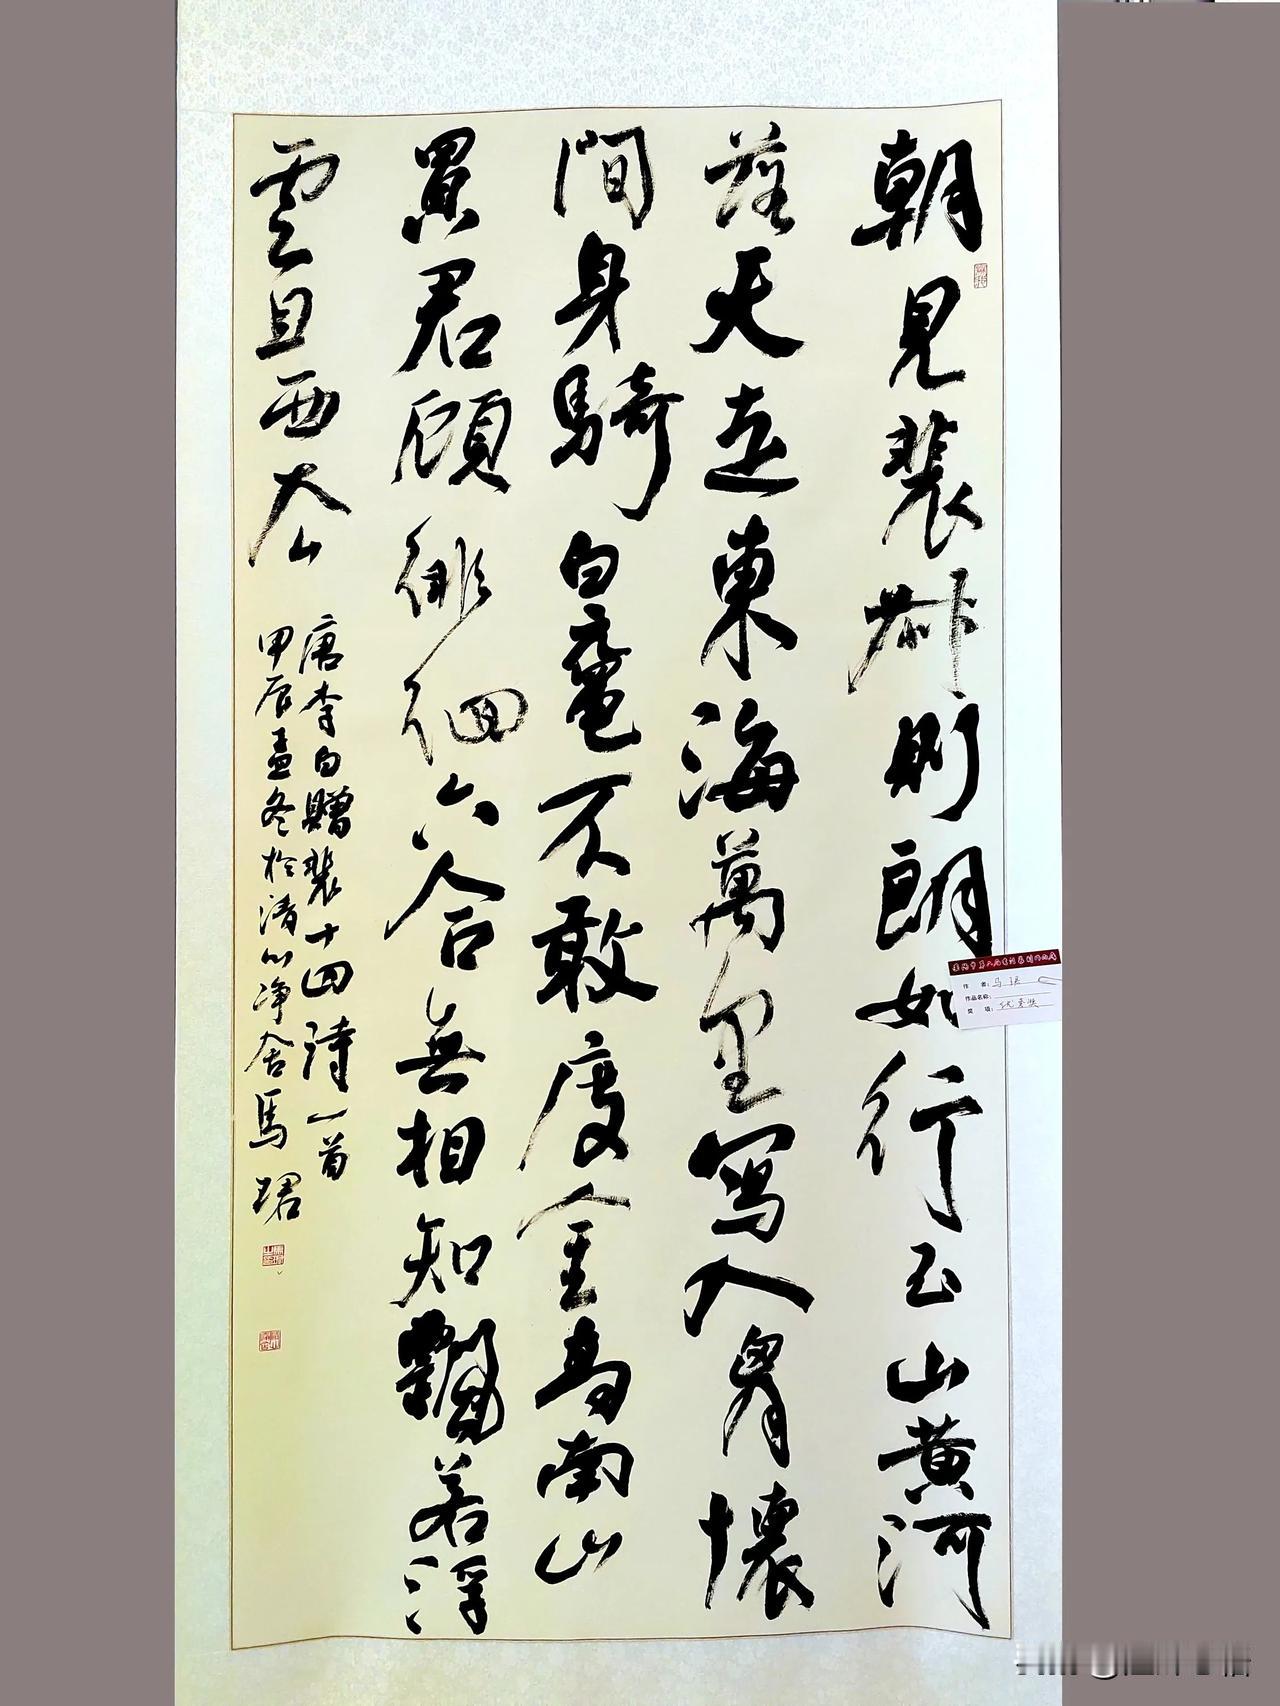 朝見裴叔則朗如行玉山黄河
落天走東海萬里寫入胷懷
間身騎白黿不敢度金高南山
買君顧徘徊六合無相知飄若浮
雲且西去
唐李白贈裴十四詩一首
甲辰孟冬於清心净舍馬珺
作 者：马珺
作品名称：
奖 项：优秀奖